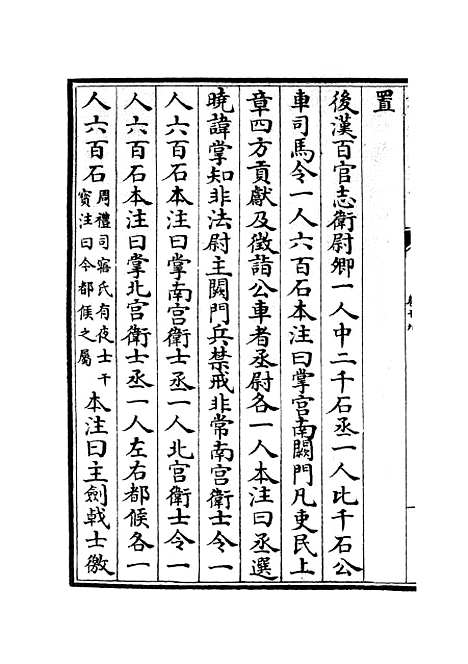 置
後漢百官志衛尉卿一人中二千石丞一人比千石公
車司馬令一人六百石本注曰掌宫南闕門凡吏民上
章四方貢獻及徵詣公車者丞尉各一人本注曰丞選
曉諱掌知非法尉主闕門兵禁戒非常南宫衛士令一
人六百石本注曰掌南宫衛士丞一人北宫衛士令一
人六百石本注曰掌北宫衛士丞一人左右都候各一
人六百石周禮司寤氏有夜士干寳注曰今都候之屬本注曰主劍戟士徼